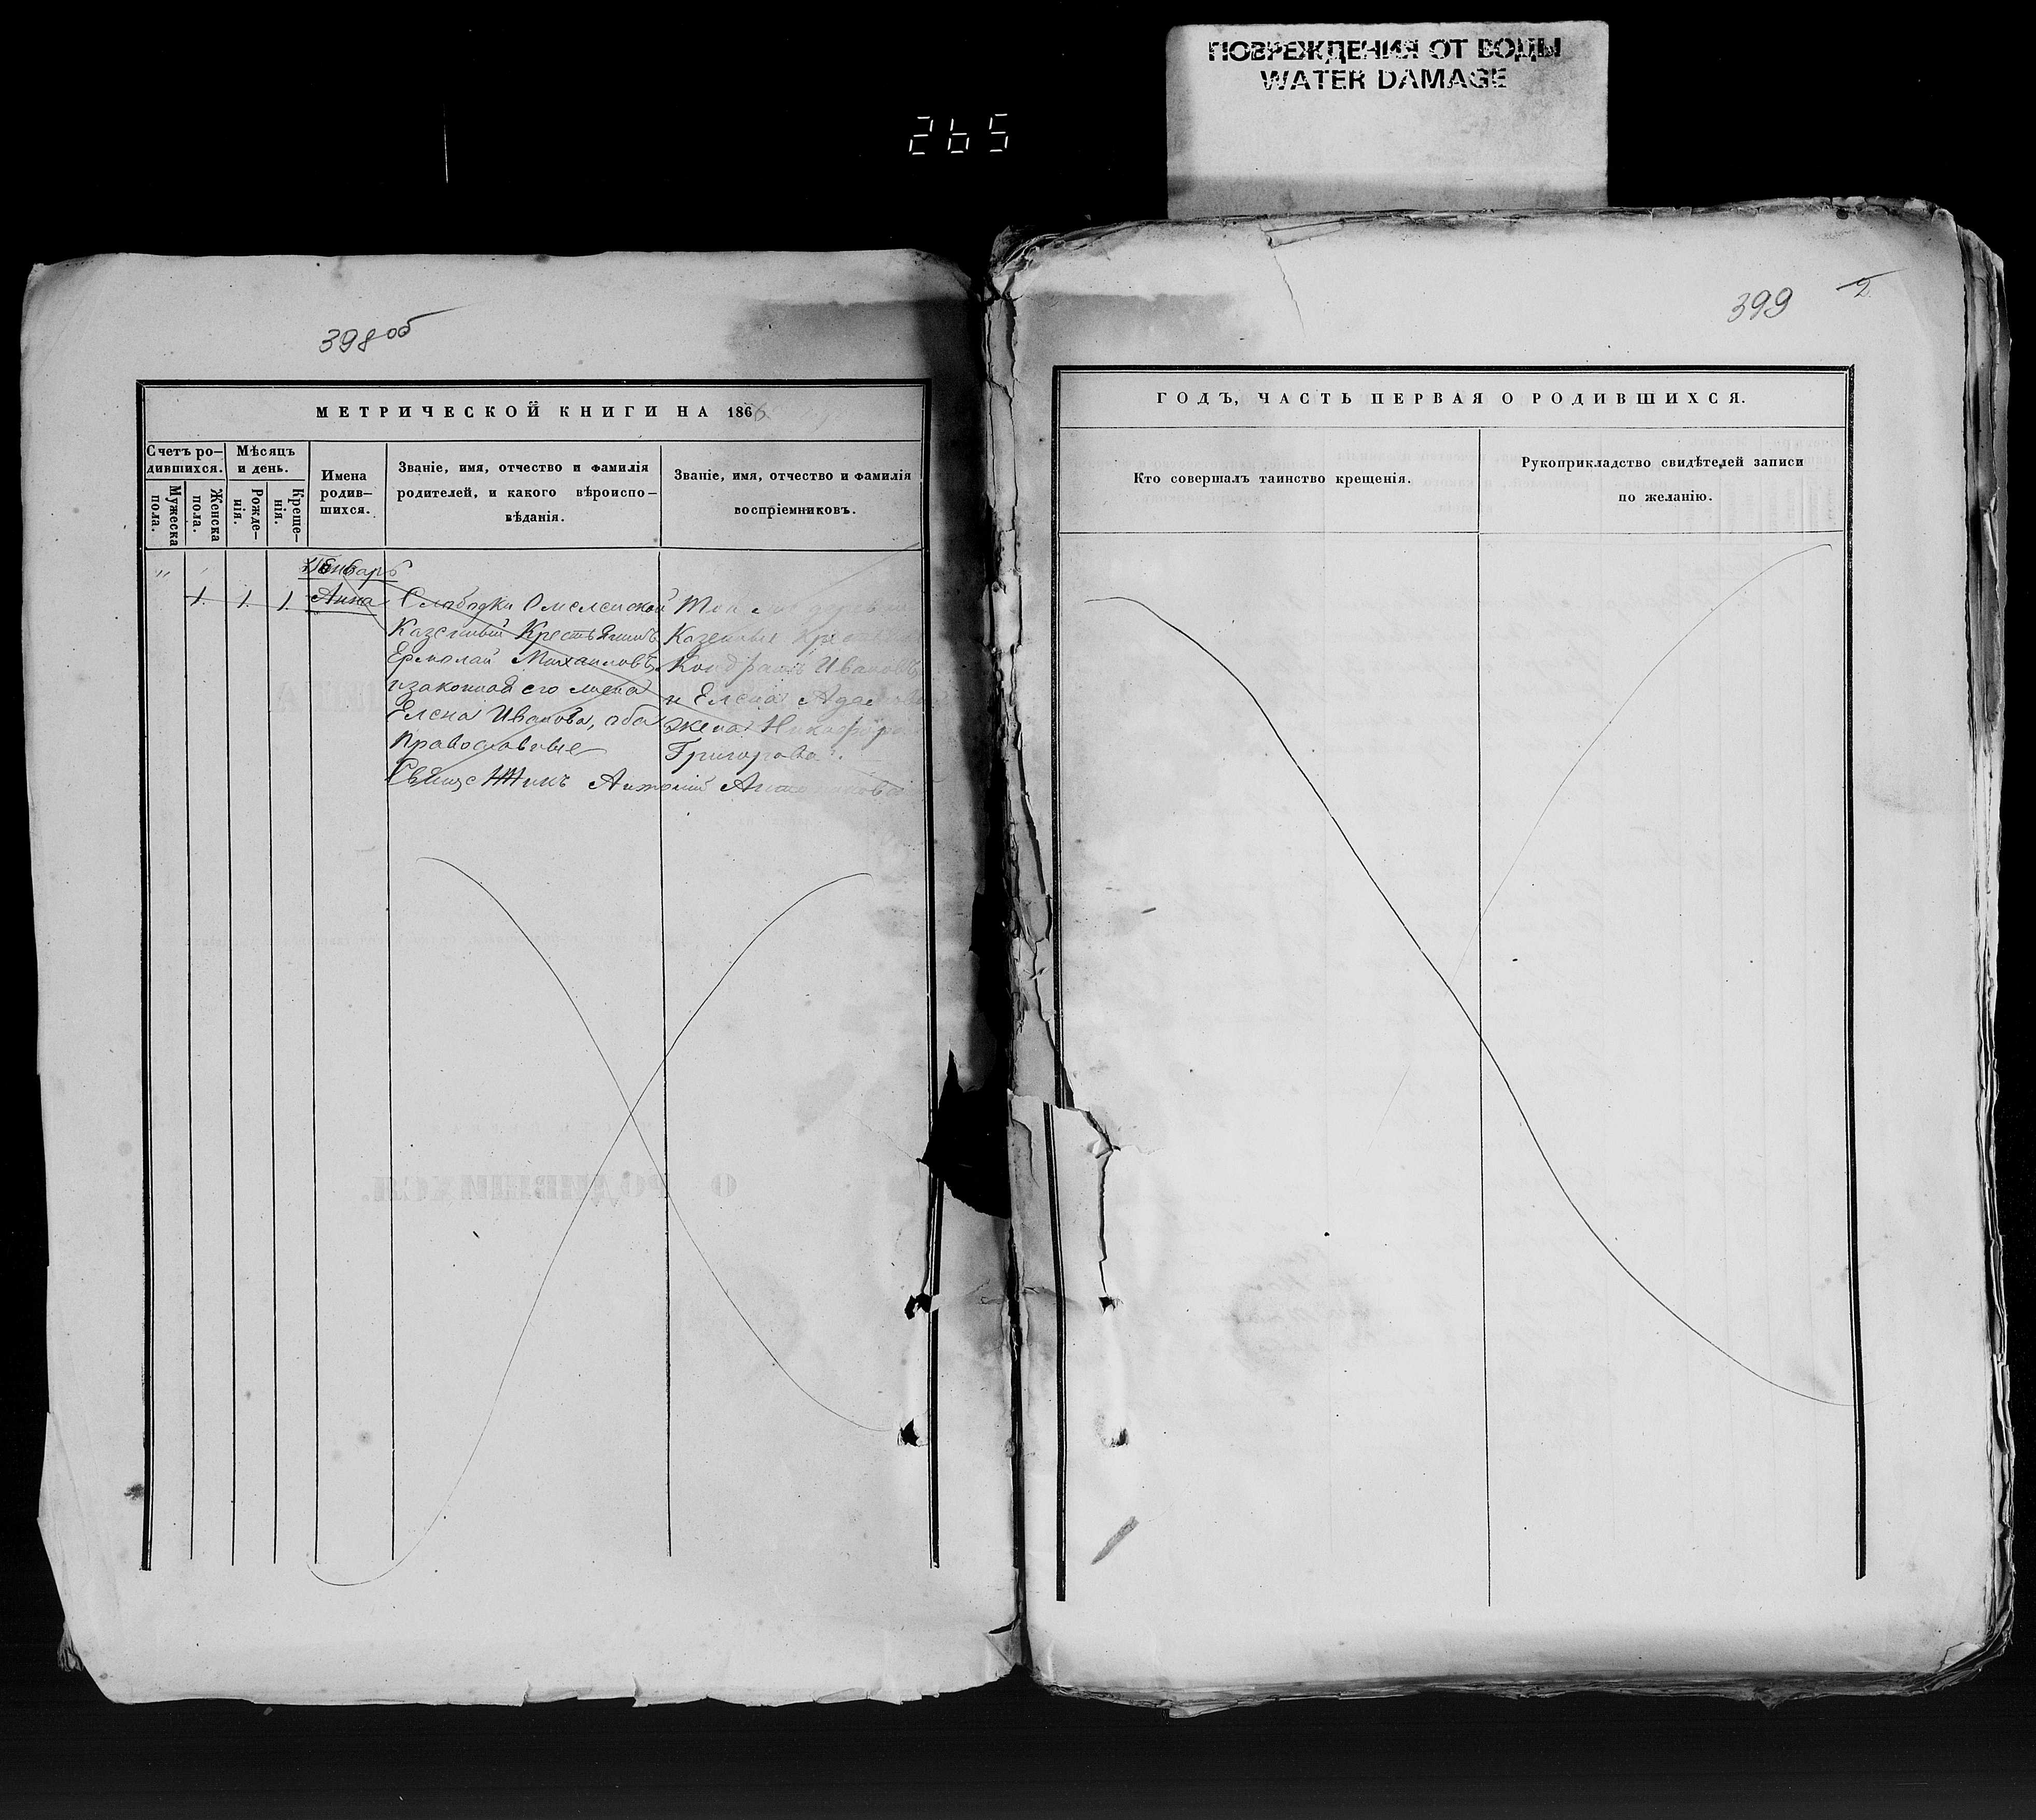 ПОВРЕЖДЕНИЯ ОТ ВОДЫ
WATER DAMAGE
265
398об
МЕТРИЧЕСКОЙ КНИГИ НА 1866
Счетъ ро-
дившихся.
Мужеска
пола.
Женска
пола.
Мѣсяцъ
и день.
Рожде-
нія.
Креще-
нія.
Имена
родив-
шихся.
Званіе, имя, отчество и фамилія
родителей, и какого вѣроиспо-
вѣданія.
Званіе, имя, отчество и фамилія
воспріемниковъ.
Январь
1. 1. 1. Анна
Слободки Омеленской
Казенный Крестьянинъ
Ермолай Михаиловъ
и законная его жена
Елена Иванова, оба
православные
Той же деревни
Казенные
Кондратъ Ивановъ
и Елена
жена Никифора
Григорова.
Священникъ Антоній
399 2
ГОДЪ, ЧАСТЬ ПЕРВАЯ О РОДИВШИХСЯ.
Кто совершалъ таинство крещенія.
Рукоприкладство свидѣтелей записи
по желанію.